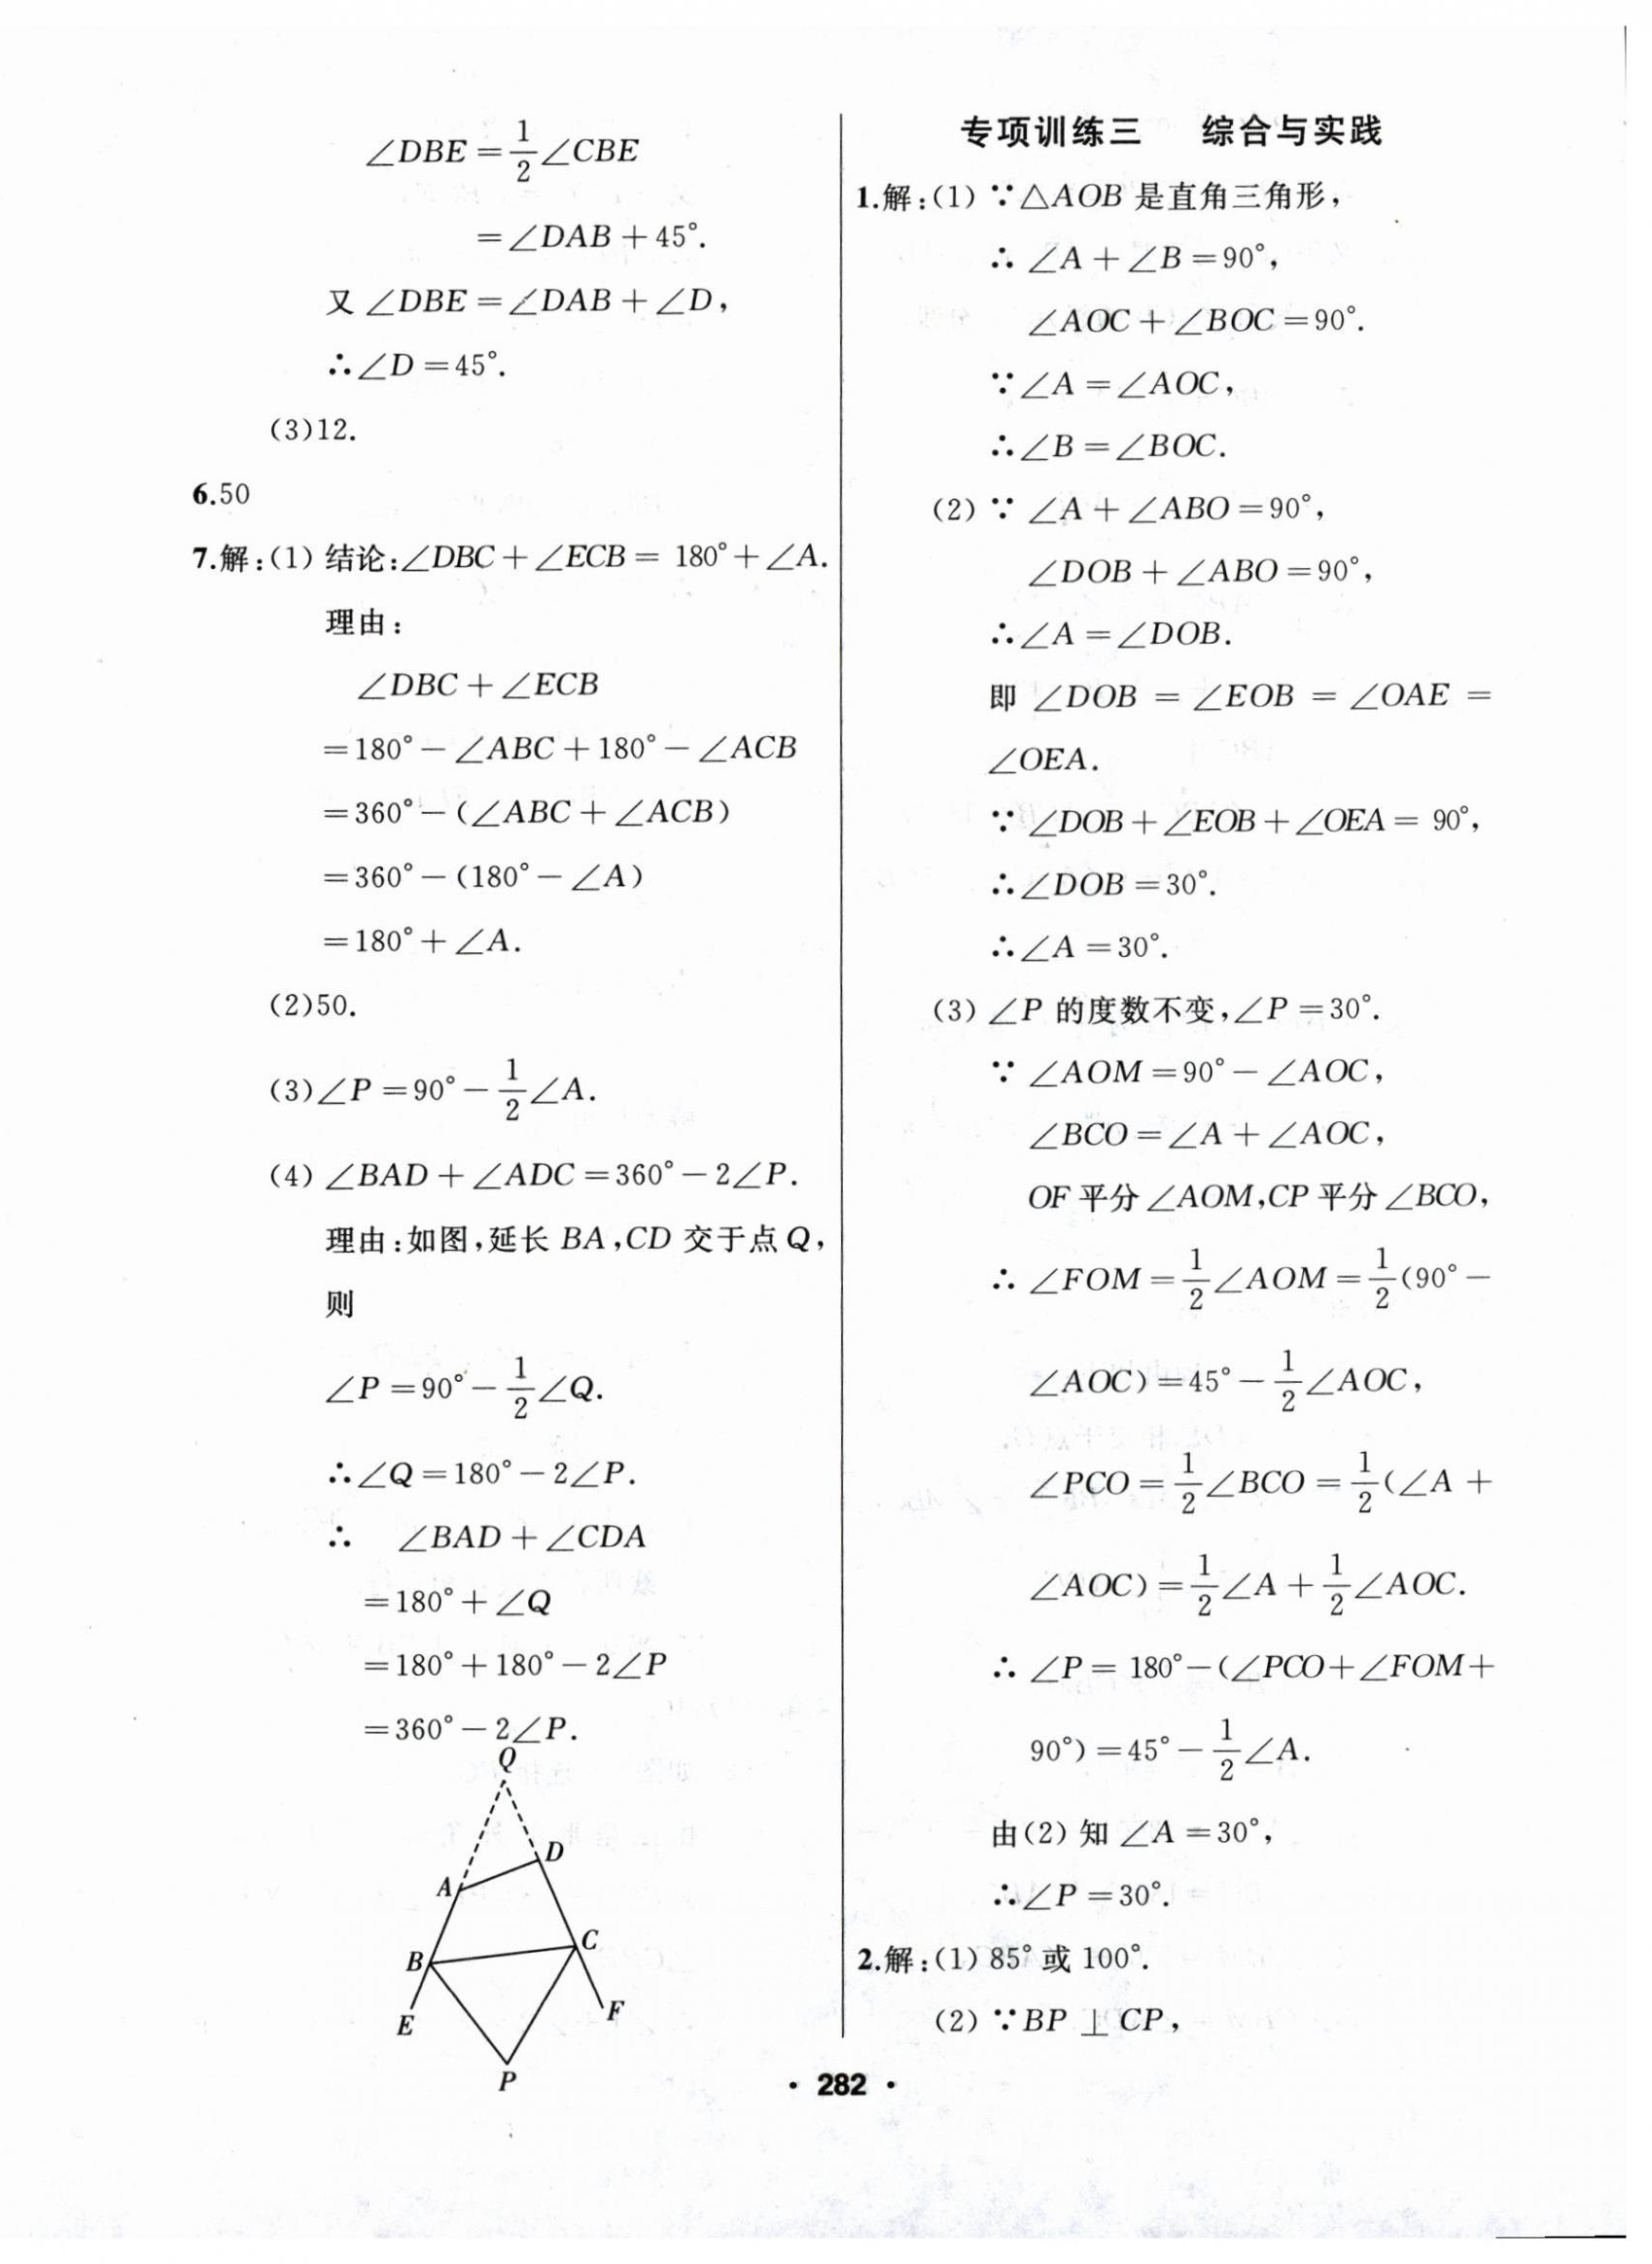 ∠DBE=1/2∠CBE
=∠DAB+45°.
又∠DBE=∠DAB+∠D,
∴∠D=45°.
(3)12.
6.50
7.解:(1)结论:∠DBC+∠ECB=180°+∠A.
理由:
∠DBC+∠ECB
=180°-∠ABC+180°-∠ACB
=360°-(∠ABC+∠ACB)
=360°-(180°-∠A)
=180°+∠A.
(2)50.
(3)∠P=90°-1/2∠A.
(4)∠BAD+∠ADC=360°-2∠P.
理由:如图,延长BA,CD交于点Q,
则
∠P=90°-1/2∠Q.
∴∠Q=180°-2∠P.
∴ ∠BAD+∠CDA
=180°+∠Q
=180°+180°-2∠P
=360°-2∠P.
Q
D
A
C
B
F
E
P
专项训练三 综合与实践
1.解:(1)∵△AOB是直角三角形,
∴∠A+∠B=90°,
∠AOC+∠BOC=90°.
∵∠A=∠AOC,
∴∠B=∠BOC.
(2)∵∠A+∠ABO=90°,
∠DOB+∠ABO=90°,
∴∠A=∠DOB.
即∠DOB=∠EOB=∠OAE=
∠OEA.
∵∠DOB+∠EOB+∠OEA=90°,
∴∠DOB=30°.
∴∠A=30°.
(3)∠P的度数不变,∠P=30°.
∵∠AOM=90°-∠AOC,
∠BCO=∠A+∠AOC,
OF平分∠AOM,CP平分∠BCO,
∴∠FOM=1/2∠AOM=1/2(90°-
∠AOC)=45°-1/2∠AOC,
∠PCO=1/2∠BCO=1/2(∠A+
∠AOC)=1/2∠A+1/2∠AOC.
∴∠P=180°-(∠PCO+∠FOM+
90°)=45°-1/2∠A.
由(2)知∠A=30°,
∴∠P=30°.
2.解:(1)85°或100°.
(2)∵BP⊥CP,
· 282 ·